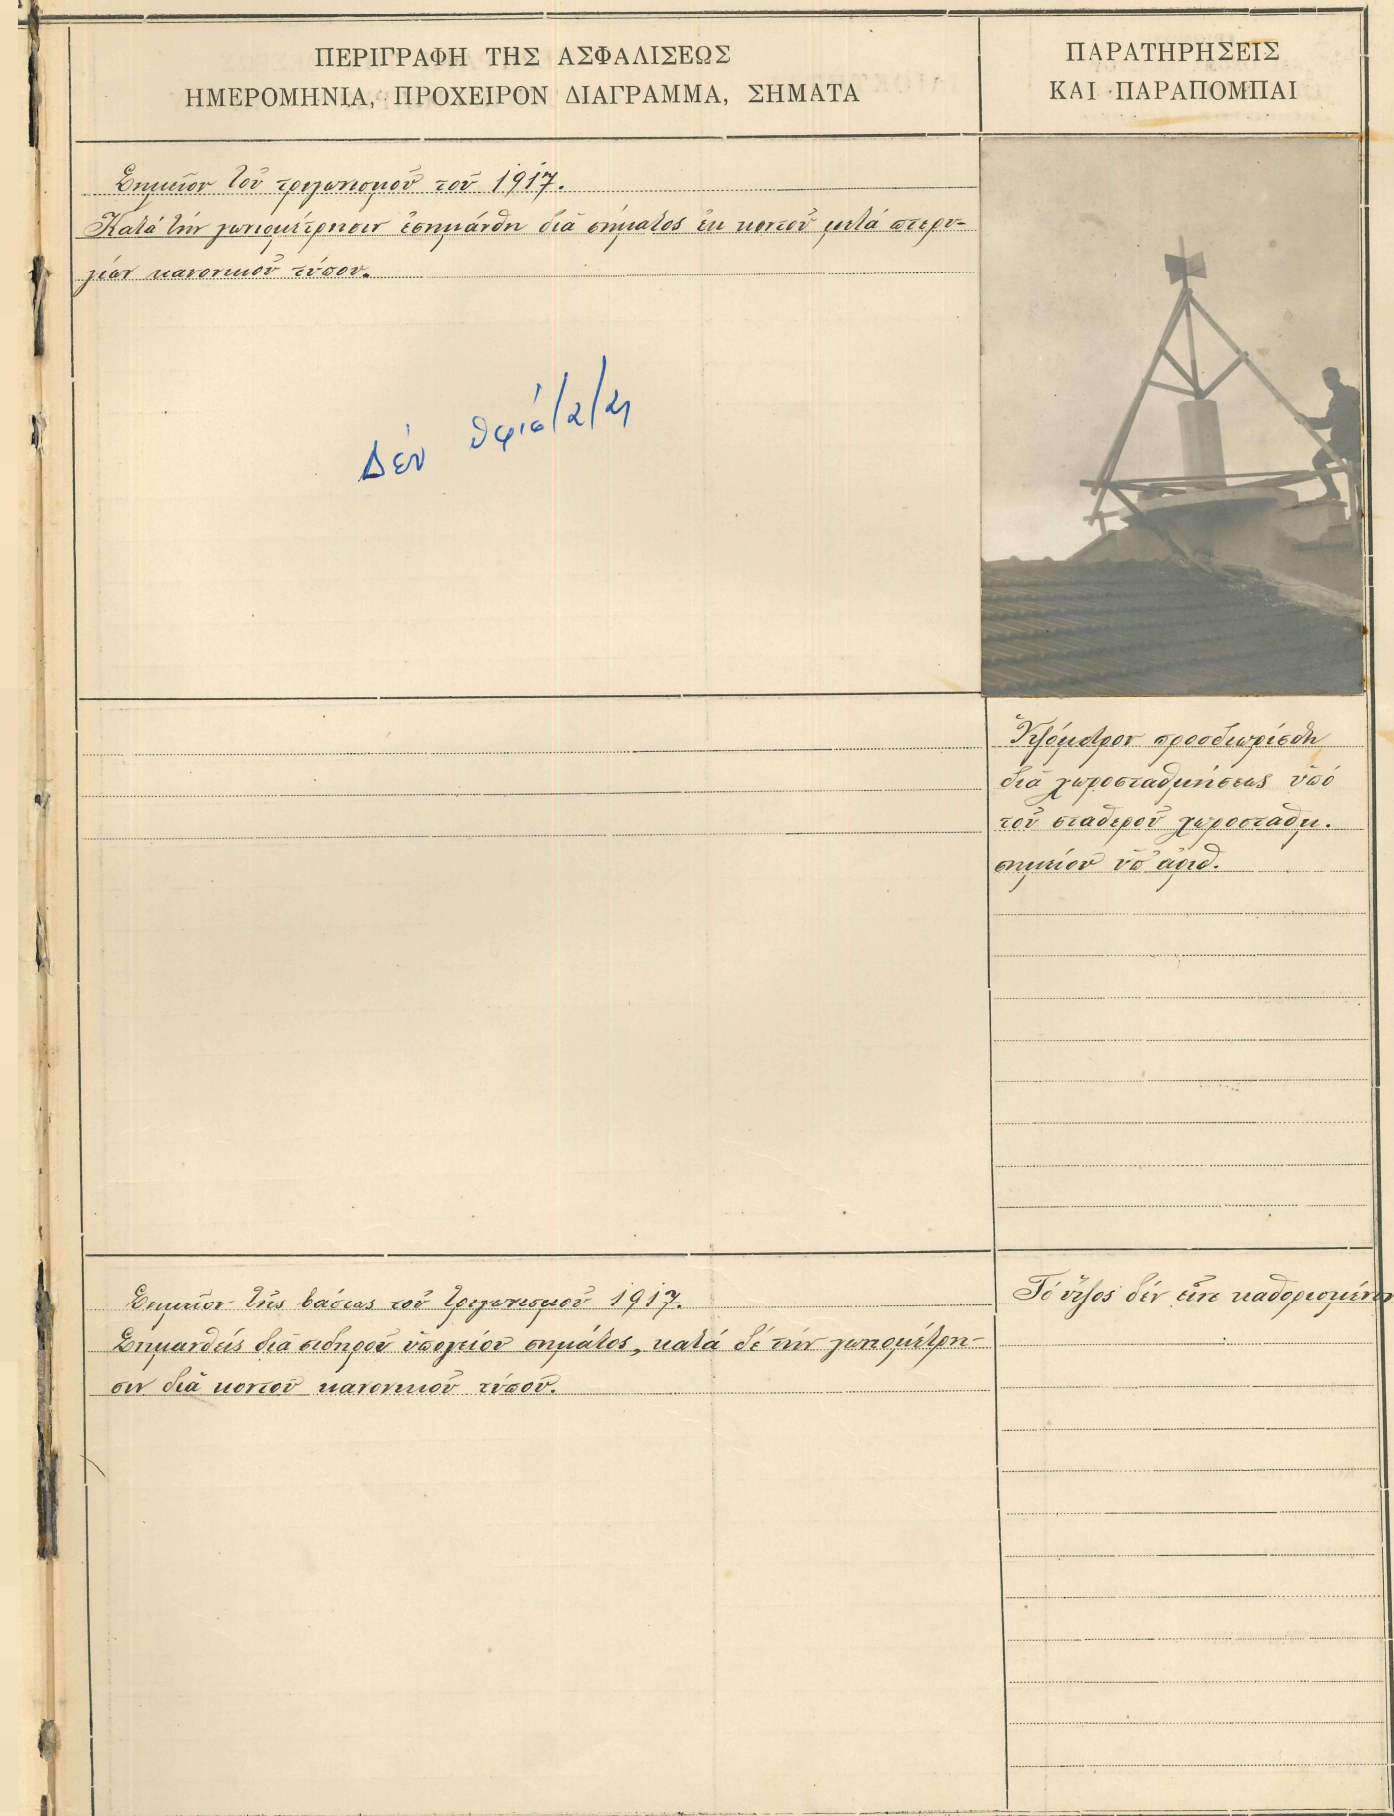 ΠΕΡΙΓΡΑΦΗ ΤΗΣ ΑΣΦΑΛΙΣΕΩΣ
ΗΜΕΡΟΜΗΝΙΑ, ΠΡΟΧΕΙΡΟΝ ΔΙΑΓΡΑΜΜΑ, ΣΗΜΑΤΑ
ΠΑΡΑΤΗΡΗΣΕΙΣ
ΚΑΙ ΠΑΡΑΠΟΜΠΑΙ
Σημεῖον τοῦ τριγωνισμοῦ τοῦ 1917.
Κατά τήν γωνιομέτρησιν ἐσημάνθη διά σήματος ἐκ κοντοῦ μετά πτερυ-
γίων κανονικοῦ τύπου.
Δέν
Ὑψόμετρον προσδιωρίσθη
διά χωροσταθμήσεως ὑπό
τοῦ σταθεροῦ χωροσταθμ.
σημείου ὑπ' ἀριθ.
Σημεῖον τῆς βάσεως τοῦ τριγωνισμοῦ 1917.
Σημανθείς διά σιδηροῦ ὑπογείου σημάτος, κατά δέ τήν γωνιομέτρη-
σιν διά κοντοῦ κανονικοῦ τύπου.
Τό ὕψος δέν εἶνε καθορισμένον